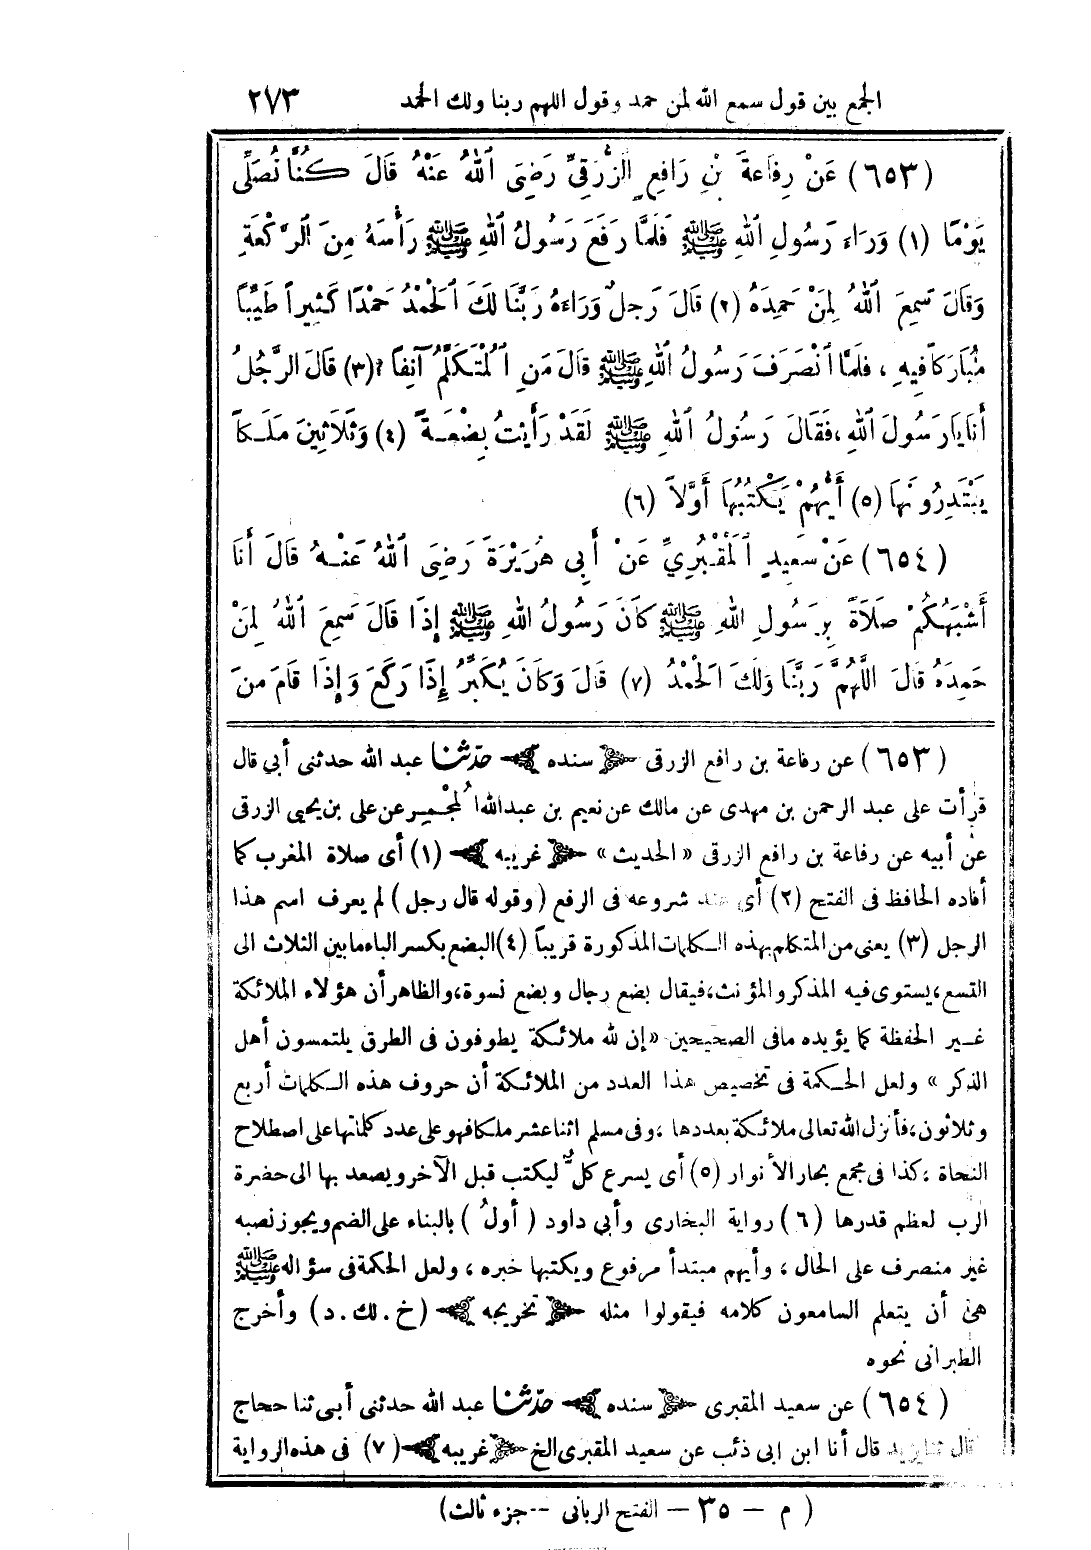 الجمع بين قول سمع الله لمن حمد وقول اللهم ربنا ولك الحمد ٢٧٣
(٦٥٣) عَنْ رِفَاعَةَ بْنِ رَافِعٍ الزُّرَقِيِّ رَضِيَ اللهُ عَنْهُ قَالَ كُنَّا نُصَلِّى
يَوْمًا (١) وَرَاءَ رَسُولِ اللهِ ﷺ فَلَمَّا رَفَعَ رَسُولُ اللهِ ﷺ رَأْسَهُ مِنَ الرَّكْعَةِ
وَقَالَ سَمِعَ اللهُ لِمَنْ حَمِدَهُ (٢) قَالَ رَجلٌ وَرَاءَهُ رَبَّنَا لَكَ الْحَمْدُ حَمْدًا كَثِيراً طَيِّبًا
مُبَارَكاً فِيهِ ، فَلَمَّا انْصَرَفَ رَسُولُ اللهِ ﷺ قَالَ مَنِ الْمُتَكَلِّمُ آنِفًا ؟(٣) قَالَ الرَّجُلُ
أَنَا يَارَسُولَ اللهِ ، فَقَالَ رَسُولُ اللهِ ﷺ لَقَدْ رَأَيْتُ بِضْعَةً (٤) وَثَلَاثِينَ مَلَكاً
يَبْتَدِرُونَهَا (٥) أَيُّهُمْ يَكْتُبُهَا أَوَّلاً (٦)
(٦٥٤) عَنْ سَعِيدٍ الْمَقْبُرِيِّ عَنْ أَبِى هُرَيْرَةَ رَضِيَ اللهُ عَنْهُ قَالَ أَنَا
أَشْبَهُكُمْ صَلَاةً بِرَسُولِ اللهِ ﷺ كَانَ رَسُولُ اللهِ ﷺ إِذَا قَالَ سَمِعَ اللهُ لِمَنْ
حَمِدَهُ قَالَ اللَّهُمَّ رَبَّنَا وَلَكَ الْحَمْدُ (٧) قَالَ وَكَانَ يُكَبِّرُ إِذَا رَكَعَ وَإِذَا قَامَ مِنَ
(٦٥٣) عن رفاعة بن رافع الزرقى سنده حدّثنا عبد الله حدثنى أبي قال
قرأت على عبد الرحمن بن مهدى عن مالك عن نعيم بن عبدالله المُجْمِر عن على بن يحيى الزرقى
عن أبيه عن رفاعة بن رافع الزرقى «الحديث» غريبه (١) أى صلاة المغرب كما
أفاده الحافظ فى الفتح (٢) أى عند شروعه فى الرفع (وقوله قال رجل) لم يعرف اسم هذا
الرجل (٣) يعنى من المتكلم بهذه الكلمات المذكورة قريباً (٤) البضع بكسر الباء مابين الثلاث الى
التسع، يستوى فيه المذكر والمؤنث، فيقال بضع رجال وبضع نسوة، والظاهر أن هؤلاء الملائكة
غير الحفظة كما يؤيده مافى الصحيحين «إن لله ملائكة يطوفون فى الطرق يلتمسون أهل
الذكر» ولعل الحكمة فى تخصيص هذا العدد من الملائكة أن حروف هذه الكلمات أربع
وثلاثون، فأنزل الله تعالى ملائكة بعددها ، وفى مسلم اثنا عشر ملكا فهو على عدد كلماتها على اصطلاح
النحاة ، كذا فى مجمع بحار الأنوار (٥) أى يسرع كلٌّ ليكتب قبل الآخر ويصعد بها الى حضرة
الرب لعظم قدرها (٦) رواية البخارى وأبي داود (أولُ) بالبناء على الضم ويجوز نصبه
غير منصرف على الحال ، وأيهم مبتدأ مرفوع ويكتبها خبره ، ولعل الحكمة فى سؤاله ﷺ
هى أن يتعلم السامعون كلامه فيقولوا مثله تخريجه (خ . لك . د) وأخرج
الطبرانى نحوه
(٦٥٤) عن سعيد المقبرى سنده حدّثنا عبد الله حدثنى أبى ثنا حجاج
قال ثنا يزيد قال أنا ابن ابى ذئب عن سعيد المقبرى الخ غريبه (٧) فى هذه الرواية
(م - ٣٥ - الفتح الربانى -- جزء ثالث)